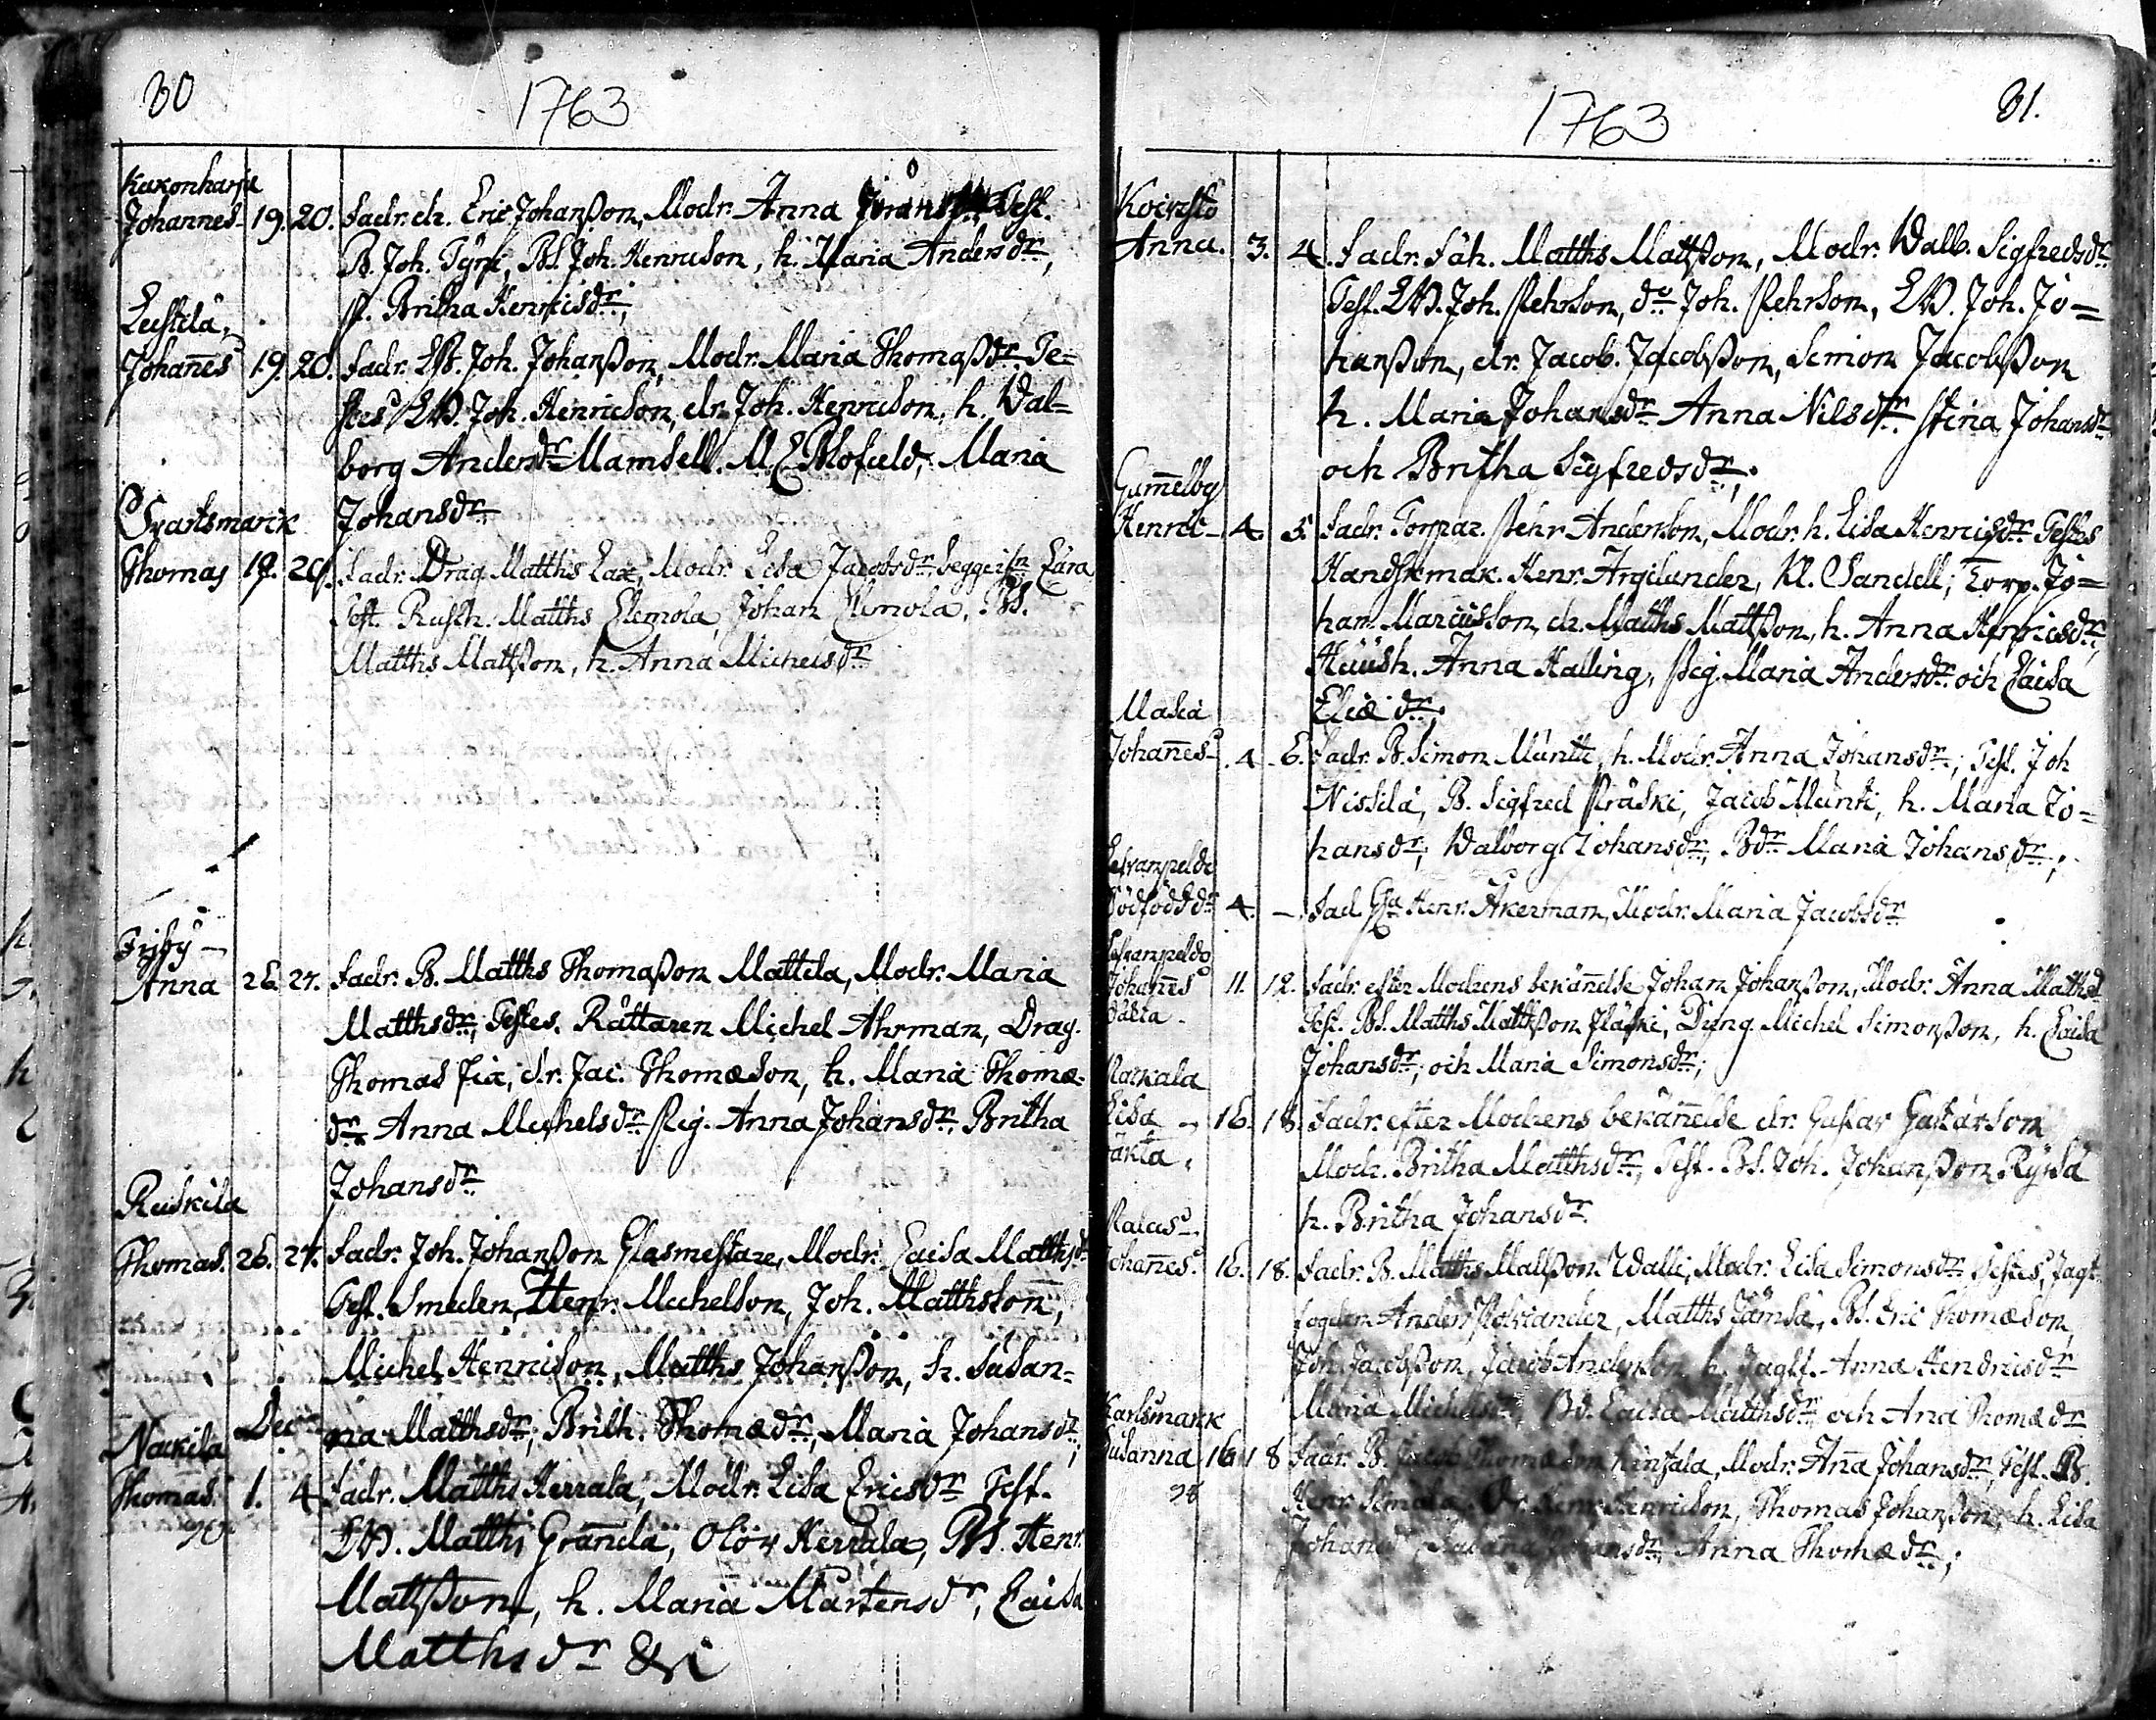 30
1763
Kakonharju
Johannes 19. 20. Fadr. dr. Eric Johanßon, Modr. Anna Test.
B. Joh. Tyni, BS. Joh. Henricson, h. Maria Andersdr,
p. Britha Henricsdr;
Leistilä
Johan̄es 19. 20. Fadr. LB. Joh. Johanßon, Modr. Maria Thomaßdr. Te=
stes EW. Joh. Henricson, dr. Joh. Henricson, h. Wal=
borg Andersdr Mamsell. M. Maria
Johansdr.
Svartsmarck
Thomas 19. 20. Fadr. Drag. Matths Lax, Modr. Lisa Jacobsdr.
Test. Rusth. Matths Elemola, Johan Elemola, BS.
Matths Matßon, h. Anna Michelsdr
Friby
Anna 26. 27. Fadr. B. Matths Thomaßon Mattila, Modr. Maria
Matthsdr; Testes. Råttaren Michel Ahrman, Drag.
Thomas Fia, dr. Jac. Thomæson, h. Maria Thomæ-
dr. Anna Michelsdr. Pig. Anna Johansdr. Britha
Johansdr
Ruskila
Thomas. 26. 27. Fadr. Joh. Johanßon Glasmestare, Modr. Caisa Matthsdr
Test. Smeden, Henr. Michelson, Joh. Matthsson,
Michel Henricson, Matths Johanßon, h. Susan-
na Matthsdr; Brith. Thomædr, Maria Johansdr;
Nakila Decr
Thomas 1. 4. Fadr. Matths Herrala, Modr. Lisa Ericsdr Test.
EW. Matths Gran̄ila, Olov Herrala, BS. Henr.
Matßon, h. Maria Mårtensdr, Caisa
Matthsdr &c
1763
31.
Koivisto
Anna. 3. 4. Fadr. Matths Matßon, Modr. Walb. Sigfredsdr.
Test. EW. Joh. Pehrson, do Joh. Pehrson, EW. Joh. Jo=
hanßon, dr. Jacob. Jacobßon, Simon Jacobßon
h. Maria Johansdr Anna Nilsdtr Stina Johansdr
och Britha Sigfredsdr;
Gam̄elby
Henric 4. 5. Fadr. Torpar. Pehr Anderson, Modr. h. Lisa Henricsdr Testes
Handskmak. Henr. Argilander, Kl. Sandell; Torp. Jo=
han Marcusson, dr. Matths Matßon, h. Anna Henricsdr,
Hush. Anna Halling, Pig. Maria Andersdr. och Caisa
Eliædr;
Masia
Johan̄es 4. 6. Fadr. B. Simon Muntti, h. Modr. Anna Johansdr; Test. Joh
Nissilä, B. Sigfred Präski, Jacob Munti, h. Maria Jo=
hansdr; Walborg Johansdr; Bdr Maria Johansdr;
Levanpeldo
Dödfödd dr 4. Fad. Henr. Åkerman, Modr. Maria Jacobsdr
Levanpeldo
Johan̄es 11. 12. Fadr. efter Modrens bekän̄else Johan Johanßon, Modr. Anna Matthsd
Test. BS. Matths Matthßon Pläski, Dräng Michel Simonßon, h. Caisa
Johansdr; och Maria Simonsdr;
Narkala
Lisa 16. 18. Fadr. efter Modrens bekän̄else dr. Gustav Gustavson
Modr. Britha Matthsdr; Test. BS. Joh. Johanßon Rysä
h. Britha Johansdr.
Johan̄es. 16. 18. Fadr. B. Matths Matßon Walli, Modr. Lisa Simonsdr. Testes, Jagt
fogden Anders Polviander, Matths Jämsä, BS. Eric Thomæson,
Joh. Jacobßon, Jacob Anderson h. Jagtf. Anna Hendricsdr
Maria Michelsdr, Bd. Caisa Matthsdr, och An̄a Thomædr
Karlsmark
Susanna 16 18 Fadr. B. Jacob Thomæson Kinjala, Modr. An̄a Johansdr, Test. B.
Henr. Simola. Dr. Henr. Henricson, Thomas Johanßon, h. Lisa
Johansdr, Susan̄a Johansdr, Anna Thomædr;